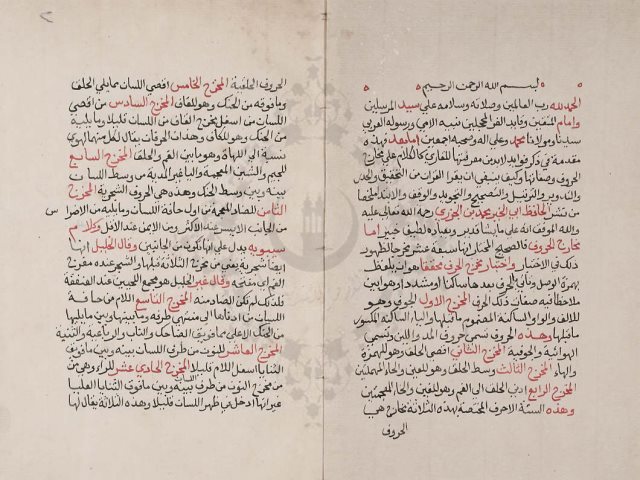 بسم الله الرحمن الرحيم
الحمد لله رب العالمين وصلاته وسلامه على سيد المرسلين
وامام المتقين وقايد الغر المحجلين نبيه الامي ورسوله العربي
سيدنا ومولانا محمد وعلى اله وصحبه اجمعين اما بعد فهذه
مقدمة في ذكر فوايد لابد من معرفتها للقاري كالكلام على مخارج
الحروف وصفاتها وكيف ينبغي ان يقرا القران من التحقيق والحدر
والتدوير والترتيل والتصحيح والتجويد والوقف والابتدا ملخصا
من نشر الحافظ ابي الخير محمد بن الجزري رحمة الله تعالى عليه
وبالله المستعان انه على ما يشا قدير وبعباده لطيف خبير اما
مخارج الحروف فالصحيح المختار انها سبعة عشر مخرجا لظهور
ذلك في الاختبار واختبار مخرج الحرف محققا هو ان يلفظ
بهمزة الوصل وتاتي بالحرف بعدها ساكنا او مشددا وهو ابين
ملاحظا فيه صفات ذلك الحرف المخرج الاول الجوف وهو
للالف والواو الساكنة المضموم ما قبلها واليا الساكنة المكسور
ما قبلها وهذه الحروف تسمى حروف المد واللين وتسمى
الهوائية والجوفية المخرج الثاني اقصى الحلق وهو للهمزة
والهاء المخرج الثالث وسط الحلق وهو للعين والحا المهملتين
المخرج الرابع ادنى الحلق الى الفم وهو للغين والخا المعجمتين
وهذه الستة الاحرف المختصة بهذه الثلاثة مخارج هي
الحروف
الحروف الحلقية المخرج الخامس اقصى اللسان مما يلي الحلق
وما فوقه من الحنك وهو للقاف المخرج السادس من اقصى
اللسان من اسفل مخرج القاف من اللسان قليلا وما يليه
من الحنك وهو للكاف وهذان الحرفان يقال لكل منهما لهوي
نسبة الى اللهاة وهو ما بين الفم والحلق المخرج السابع
للجيم والشين المعجمة واليا غير المدية من وسط اللسان
بينه وبين وسط الحنك وهذه هي الحروف الشجرية المخرج
الثامن للضاد المعجمة من اول حافة اللسان وما يليه من الاضراس
من الجانب الايسر عند الاكثر ومن الايمن عند الاقل وكلام
سيبويه يدل على انها تكون من الجانبين وقال الخليل انها
ايضا شجرية يعني من مخرج الثلاثة قبلها والشجر عنده مفرج
الفم اي مفتحه وقال غير الخليل هو مجمع اللحيين عند العنفقة
فلذلك لم تكن الضاد منه المخرج التاسع اللام من حافة
اللسان من ادناها الى منتهى طرفه وما بينها وبين ما يليها
من الحنك الاعلى مما فويق الضاحك والناب والرباعية والثنية
المخرج العاشر للنون من طرف اللسان بينه وبين ما فويق
الثنايا اسفل اللام قليلا المخرج الحادي عشر للراء وهي من
من مخرج النون من طرف اللسان بينه وبين ما فوق الثنايا العليا
غير انها ادخل في ظهر اللسان قليلا وهذه الثلاثة يقال لها